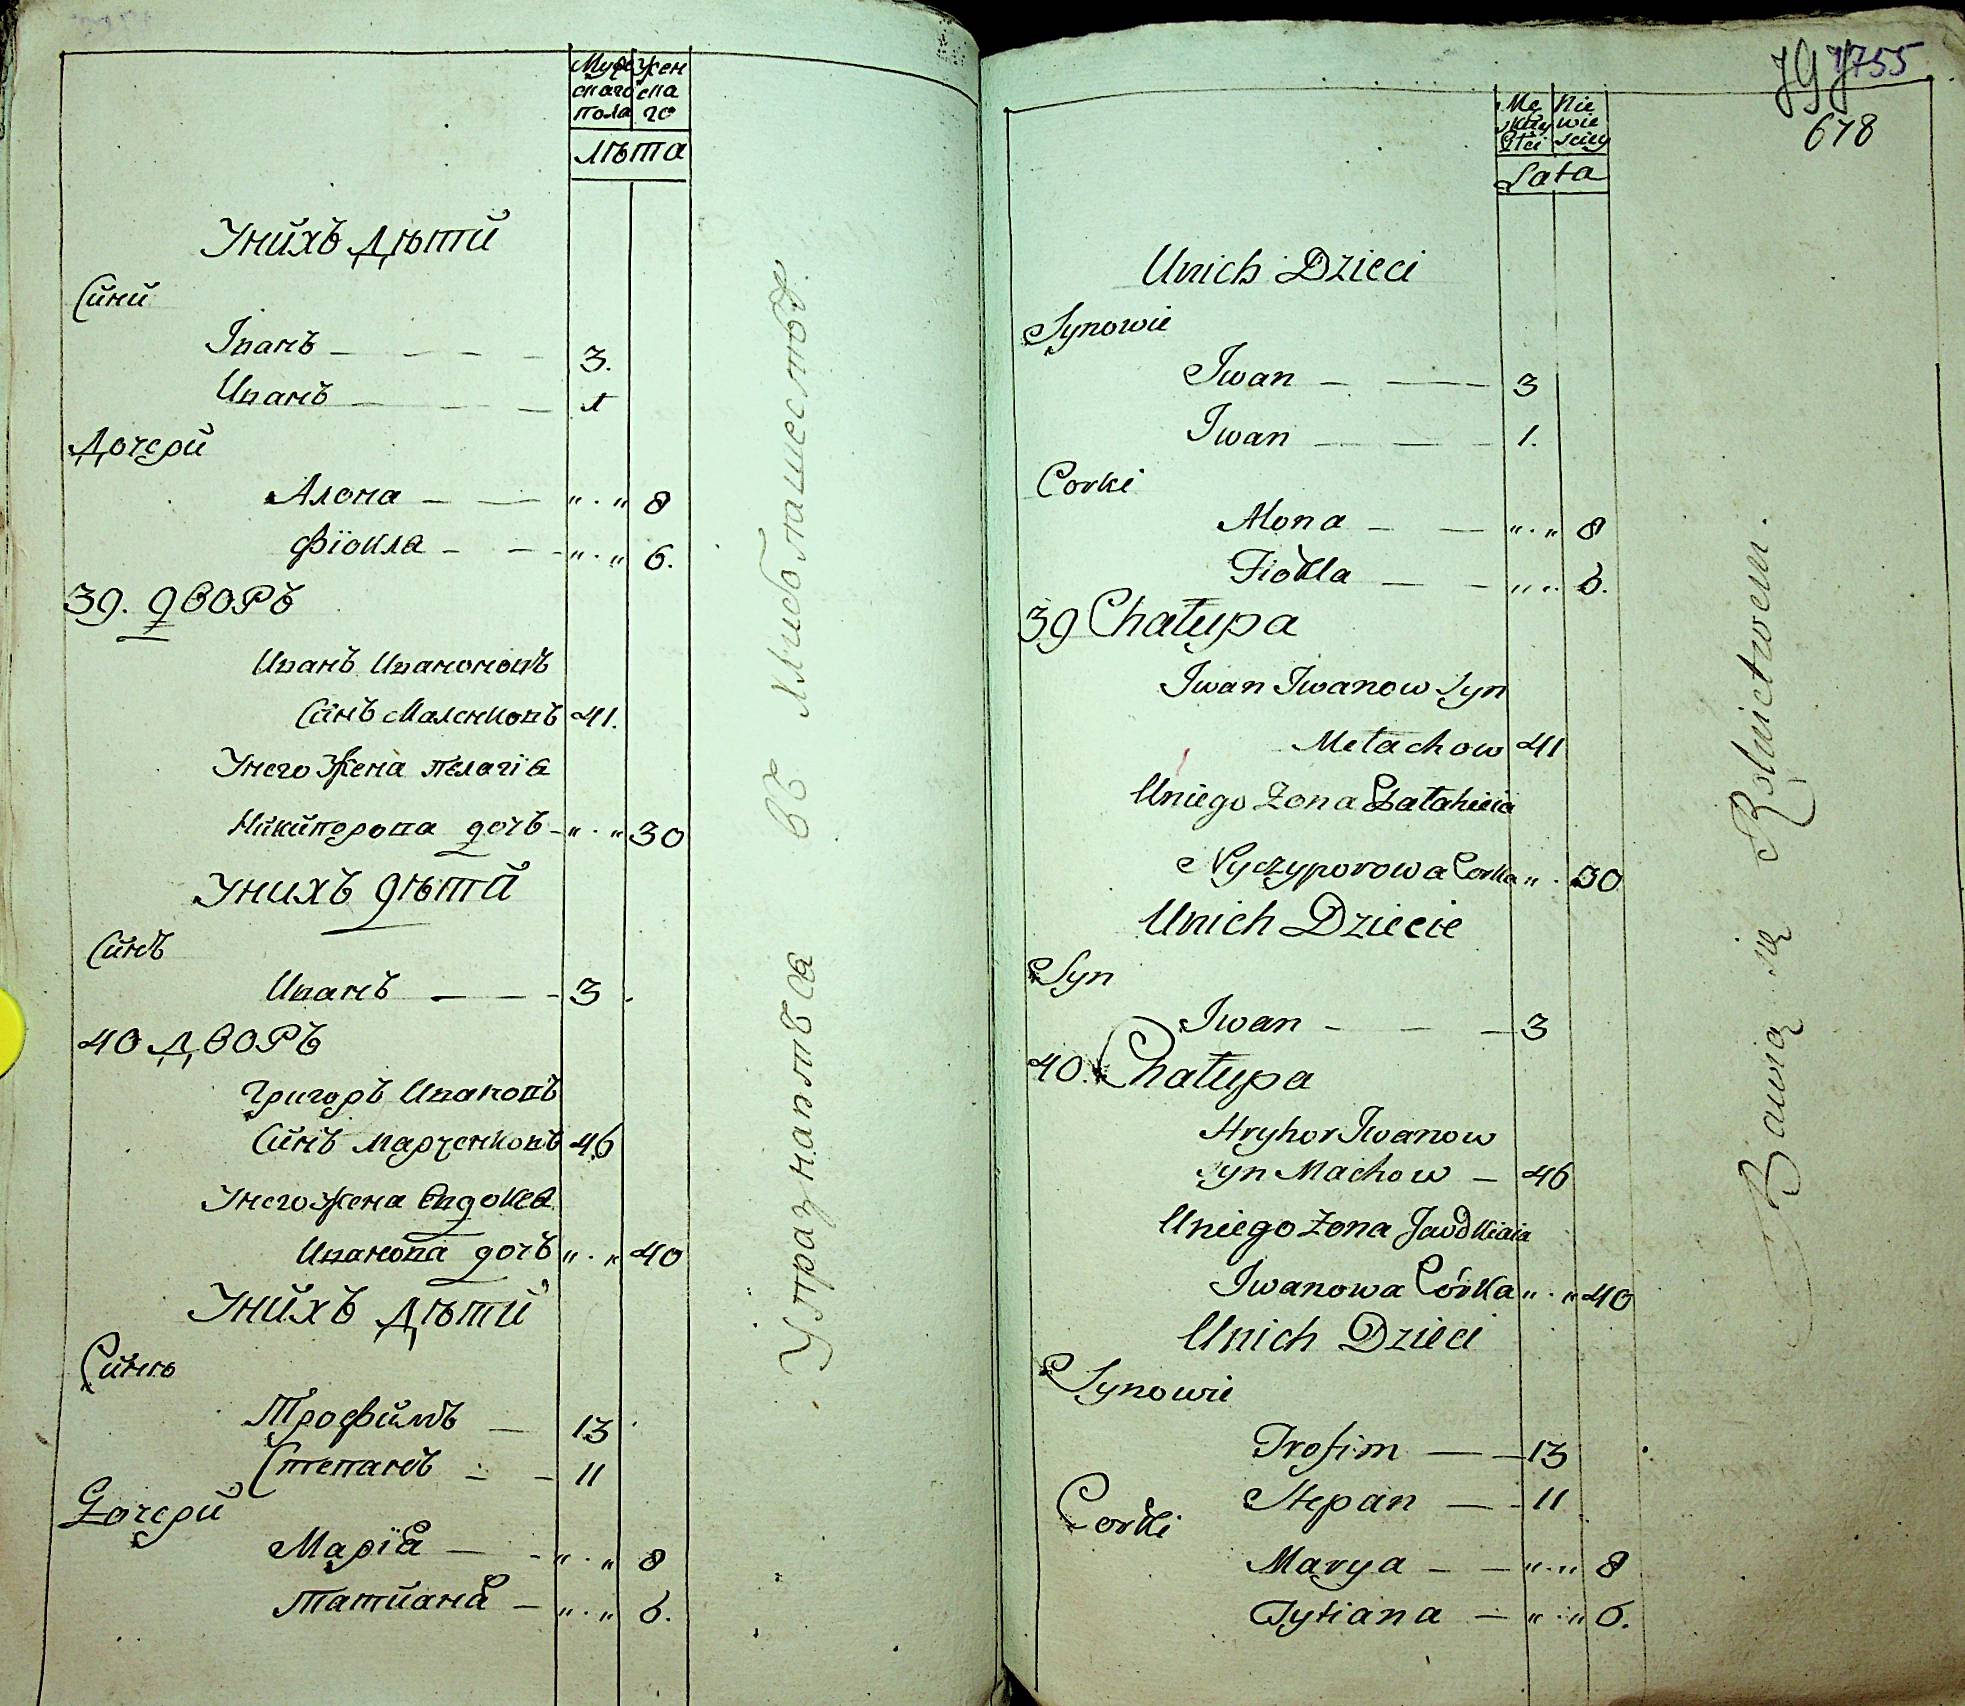 Мужескаго пола
Женскаго
Лѣта
Унйхъ Дѣтй
Сйнй
Іванъ — — — 3.
Иванъ — — — 1
Дочерй
Алона — — " . " 8
Фіокла — — " . " 6.
39. дворъ
Иванъ Ивановъ
Сйнъ Маленковъ 41.
Унего Жена пелагія
Никипорова дочъ — " . " 30
Унихъ дѣтй
Сйнъ
Иванъ — — — 3
40 дворъ
Григоръ Ивановъ
Сйнъ марченковъ 46
Унего жена Евдокея
Иванова дочъ " . " 40
Унйхъ дѣтй
Сйнѣ
Трофймъ — 13
Степанъ — — 11
Дочерй
Марія — — " . " 8
татйана — " . " 6.
Упразнаптъся въ хлиболашествѣ
1755
678
Męskiey Płci
Niewiesciey
Lata
Unich Dzieci
Synowie
Iwan — — 3
Iwan — — — 1.
Corki
Alona — — " . " 8
Fiokla — — " . . 6.
39 Chałupa
Iwan Iwanow Syn
Metachow 41
Uniego Zona Pałahieia
Nyczyporowa Corka " . 30
Unich Dziecie
Syn
Iwan — — — 3
40. Chałupa
Hryhor Iwanow
Syn Machow — 46
Uniego Zona Jawdkieia
Iwanowa Córka " . " 40
Unich Dzieci
Synowie
Trofim — — 13
Stepan — — 11
Corki
Marya — — " . " 8
Tytiana — " . " 6.
Bawią się Rolnictwem.